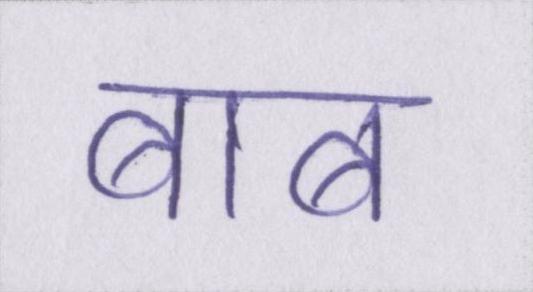 बाब